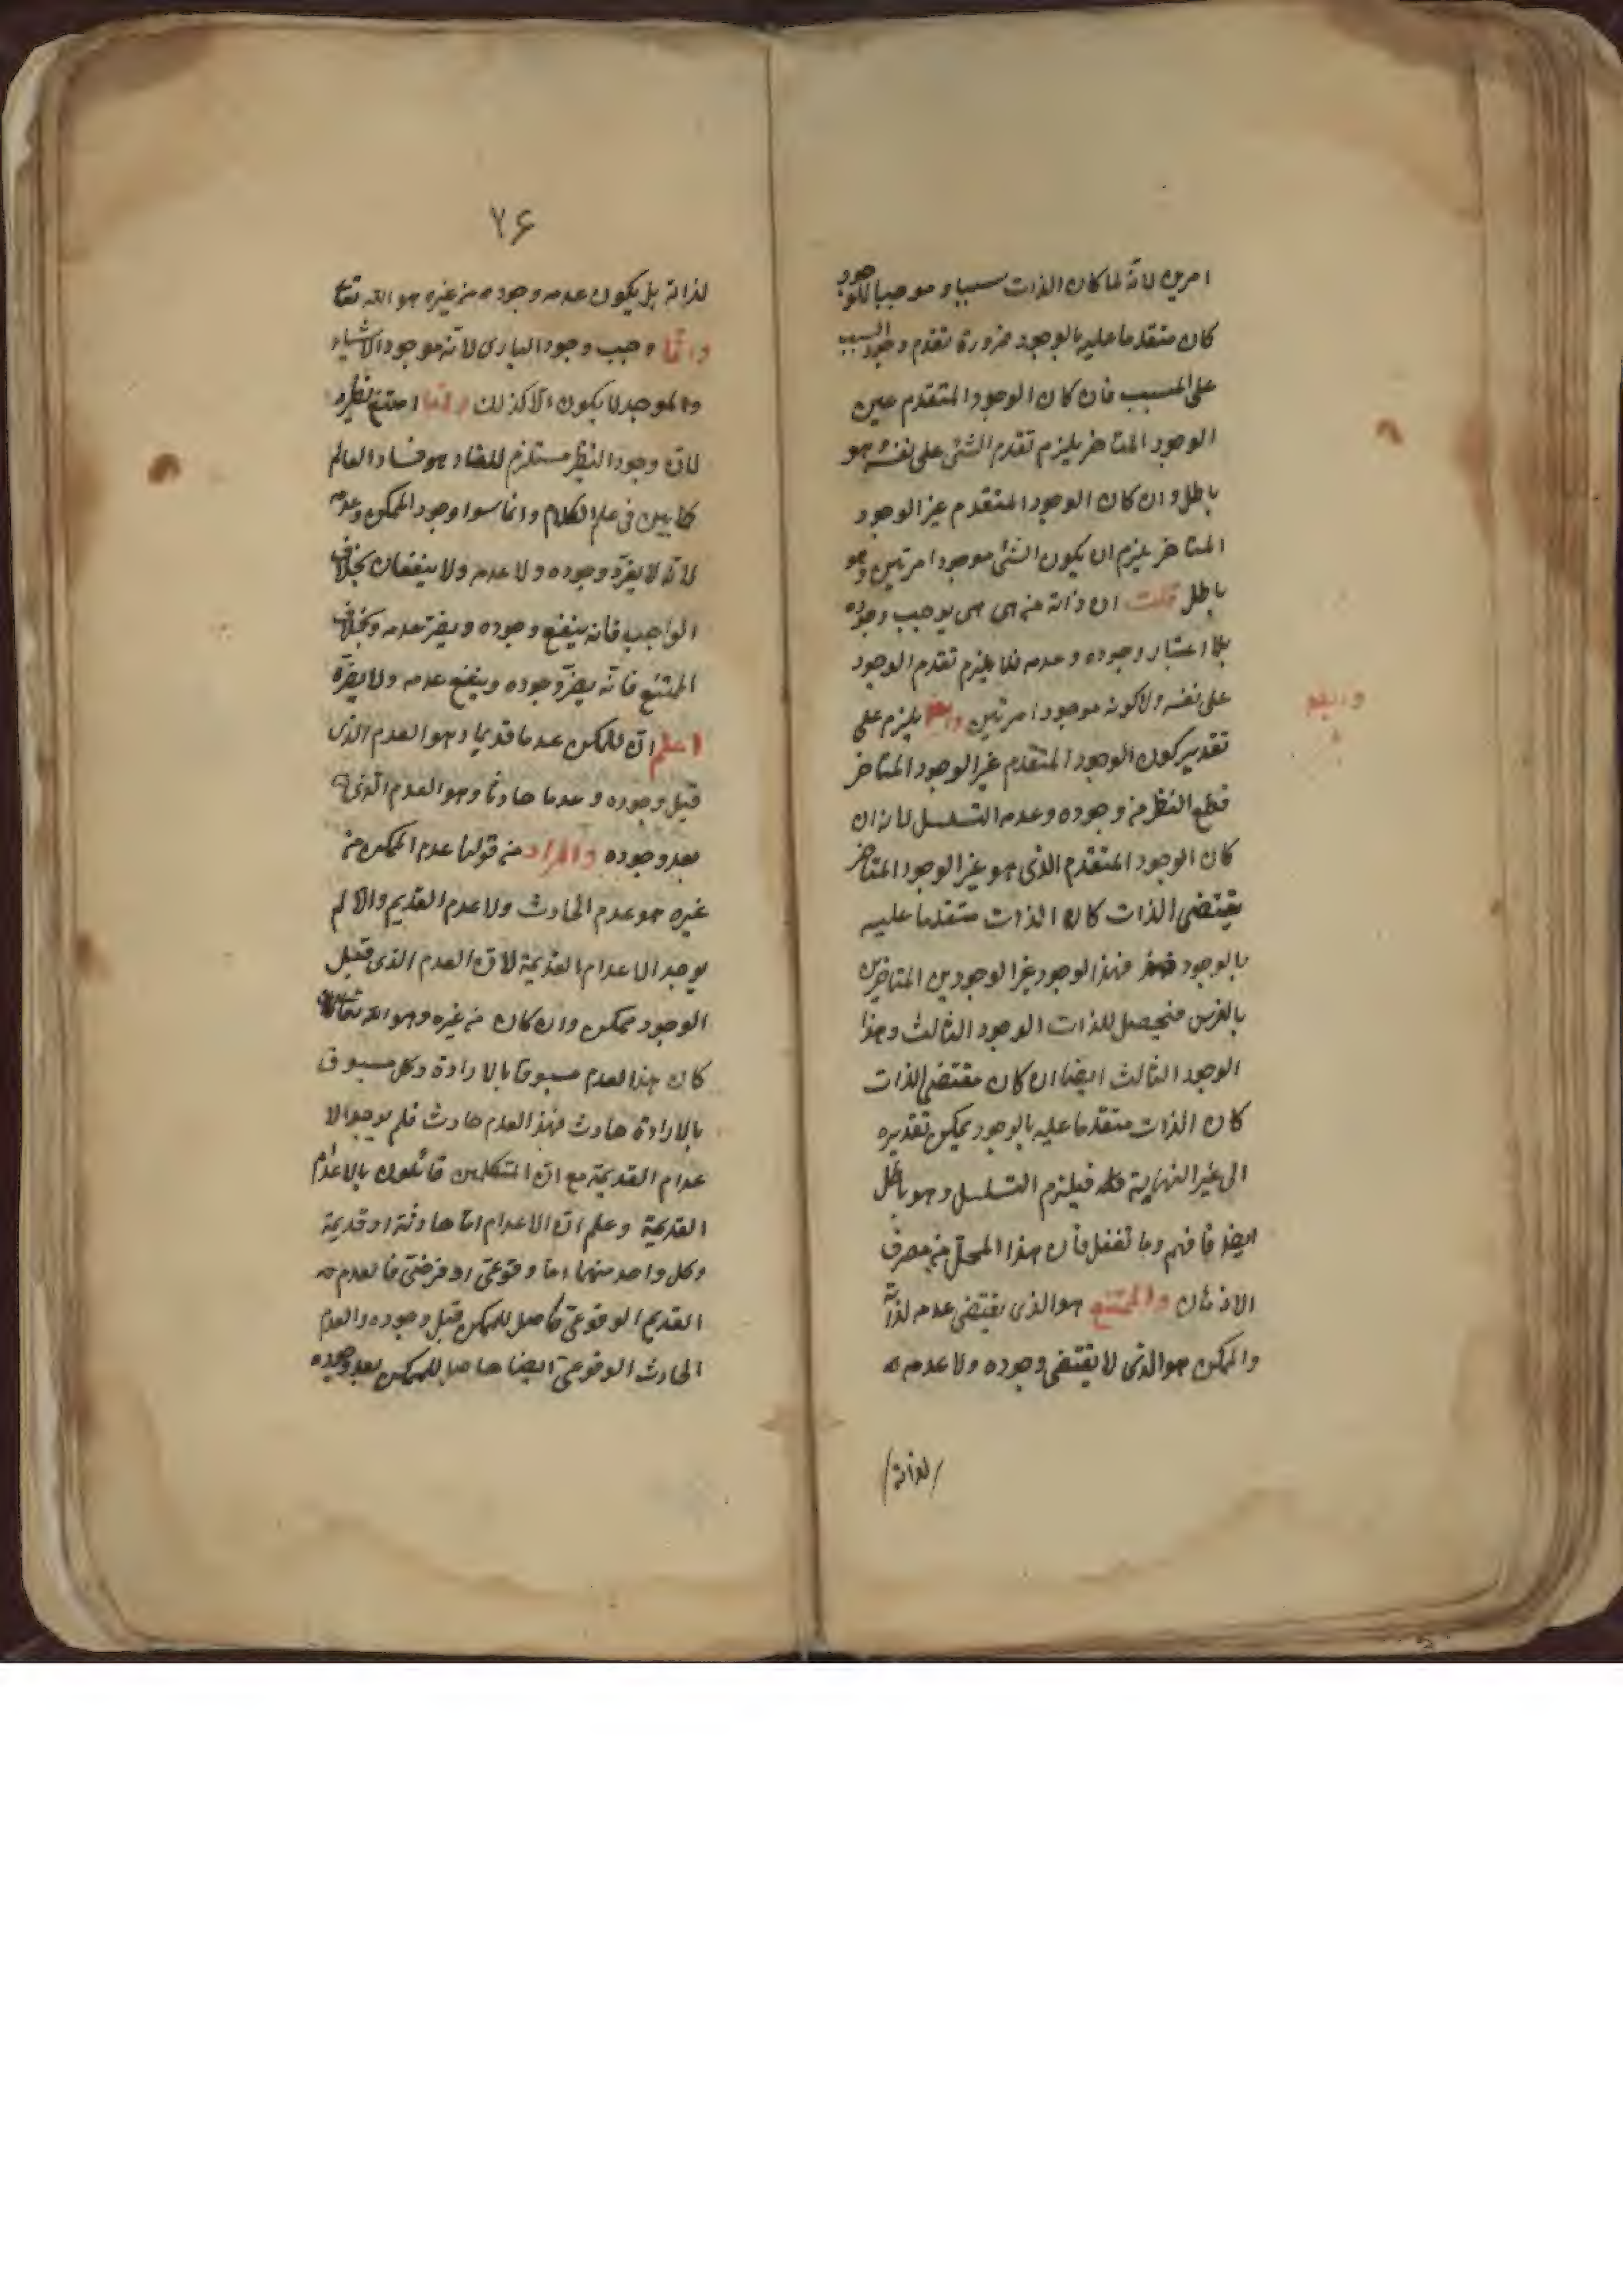 امرين لانّه لما كان الذات سببا و موجبا للوجود
كان متقدما عليه بالوجود ضرورة تقدم وجود السبب
على المسبب فان كان الوجود المتقدم عين
الوجود المتاخر يلزم تقدم الشئ على نفسه وهو
باطل وان كان الوجود المتقدم غير الوجود
المتاخر يلزم ان يكون الشئ موجودا مرتين وهو
باطل قلت ان ذاته من هى هى يوجب وجوده
بلا اعتبار وجوده وعدمه فلا يلزم تقدم الوجود
على نفسه ولا كونه موجودا مرتين يلزم على
تقدير كون الوجود المتقدم غير الوجود المتاخر
قطع النظر من وجوده وعدمه التسلسل لانه ان
كان الوجود المتقدم الذى هو غير الوجود المتاخر
يقتضى الذات كان الذات متقدما عليه
بالوجود فهذا الوجود غير الوجودين المتاخرين
بالفرض فيحصل للذات الوجود الثالث وهذا
الوجود الثالث ايضا ان كان مقتضى الذات
كان الذات متقدما عليه بالوجود يمكن تقديره
الى غير النهاية فيلزم التسلسل وهو باطل
ايضا فافهم وما تغفل فان هذا المحل من مصرف
الاذهان والممتنع هو الذى يقتضى عدمه لذاته
والممكن هو الذى لا يقتضى وجوده ولا عدمه
لذاته
٢۶
لذاته بل يكون عدمه وجوده من غيره هو الله تعا
وانما وجب وجود البارى لانه موجود الاشياء
والموجد لا يكون الّا كذلك وانما امتنع نظيره
لانّ وجود النظير مستلزم للفساد وهو فساد العالم
كما بين فى علم الكلام وانما سوا وجود الممكن وعدمه
لانّه لا يضرّ وجوده ولا عدمه ولا ينفعان بخلاف
الواجب فانه ينفع وجوده ويضرّ عدمه وبخلاف
الممتنع فانّه يضرّ وجوده وينفع عدمه ولا يضرّه
اعلم انّ للممكن عدما قديما وهو العدم الذى
قبل وجوده وعدما حادثا وهو العدم الّذى
بعد وجوده والمراد من قولنا عدم الممكن من
غيره هو عدم الحادث ولا عدم القديم والّا لم
يوجد الاعدام القديمة لانّ العدم الذى قبل
الوجود ممكن وان كان من غيره وهو الله تعالى
كان هذا العدم مسبوقا بالارادة وكل مسبوق
بالارادة حادث فهذا العدم حادث فلم يوجد الا
عدام القديمة مع انّ المتكلمين قائلون بالاعدام
القديمة وعلم انّ الاعدام امّا حادثة او قديمة
وكل واحد منهما امّا وقوعىّ او فرضىّ فالعدم
القديم الوقوعىّ حاصل للممكن قبل وجوده والعدم
الحادث الوقوعىّ ايضا حاصل للممكن بعد وجوده